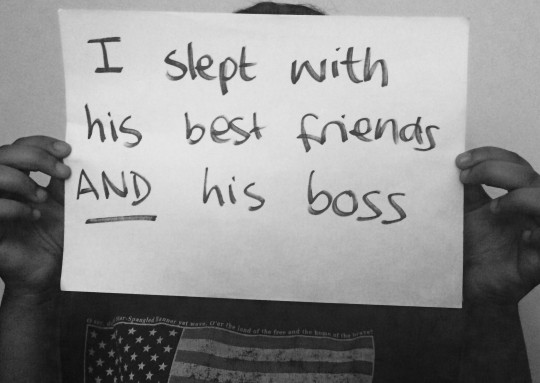 I slept with
his best friends
AND his boss
-Spangled Banner yet wave, O'er the land of the free and the home of the brave?